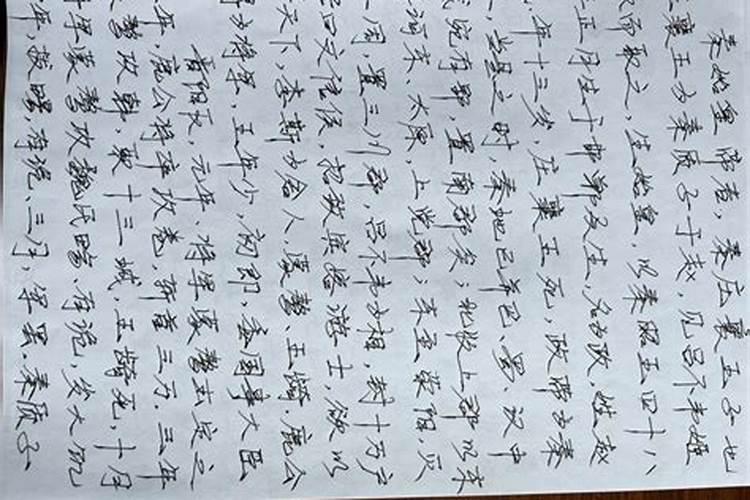 秦始皇帝者，秦庄襄王子也
襄王为秦质子于赵，见吕不韦姬
而取之，生始皇，以秦昭王四十八
正月生于邯郸及生，名为政，姓赵
年十三岁，庄襄王死，政代为秦
，当是之时，秦地已并巴、蜀、汉中
宛有郢，置南郡矣；北收上郡以东
河东、太原，上党郡；东至荥阳，灭
周，置三川郡，吕不韦为相，封十万户
曰文信侯，招致宾客游士，欲以
天下，李斯为舍人，蒙骜、王齮、麃公
为将军，王年少，初即，委国事大臣
晋阳反，元年，将军蒙骜击定之
年，麃公将卒攻卷，斩首三万，三年
骜攻韩，取十三城，王齮死，十月
将军蒙骜攻魏氏畼、有诡，岁大饥
年，拔畼，有诡、三月，军罢，秦质子